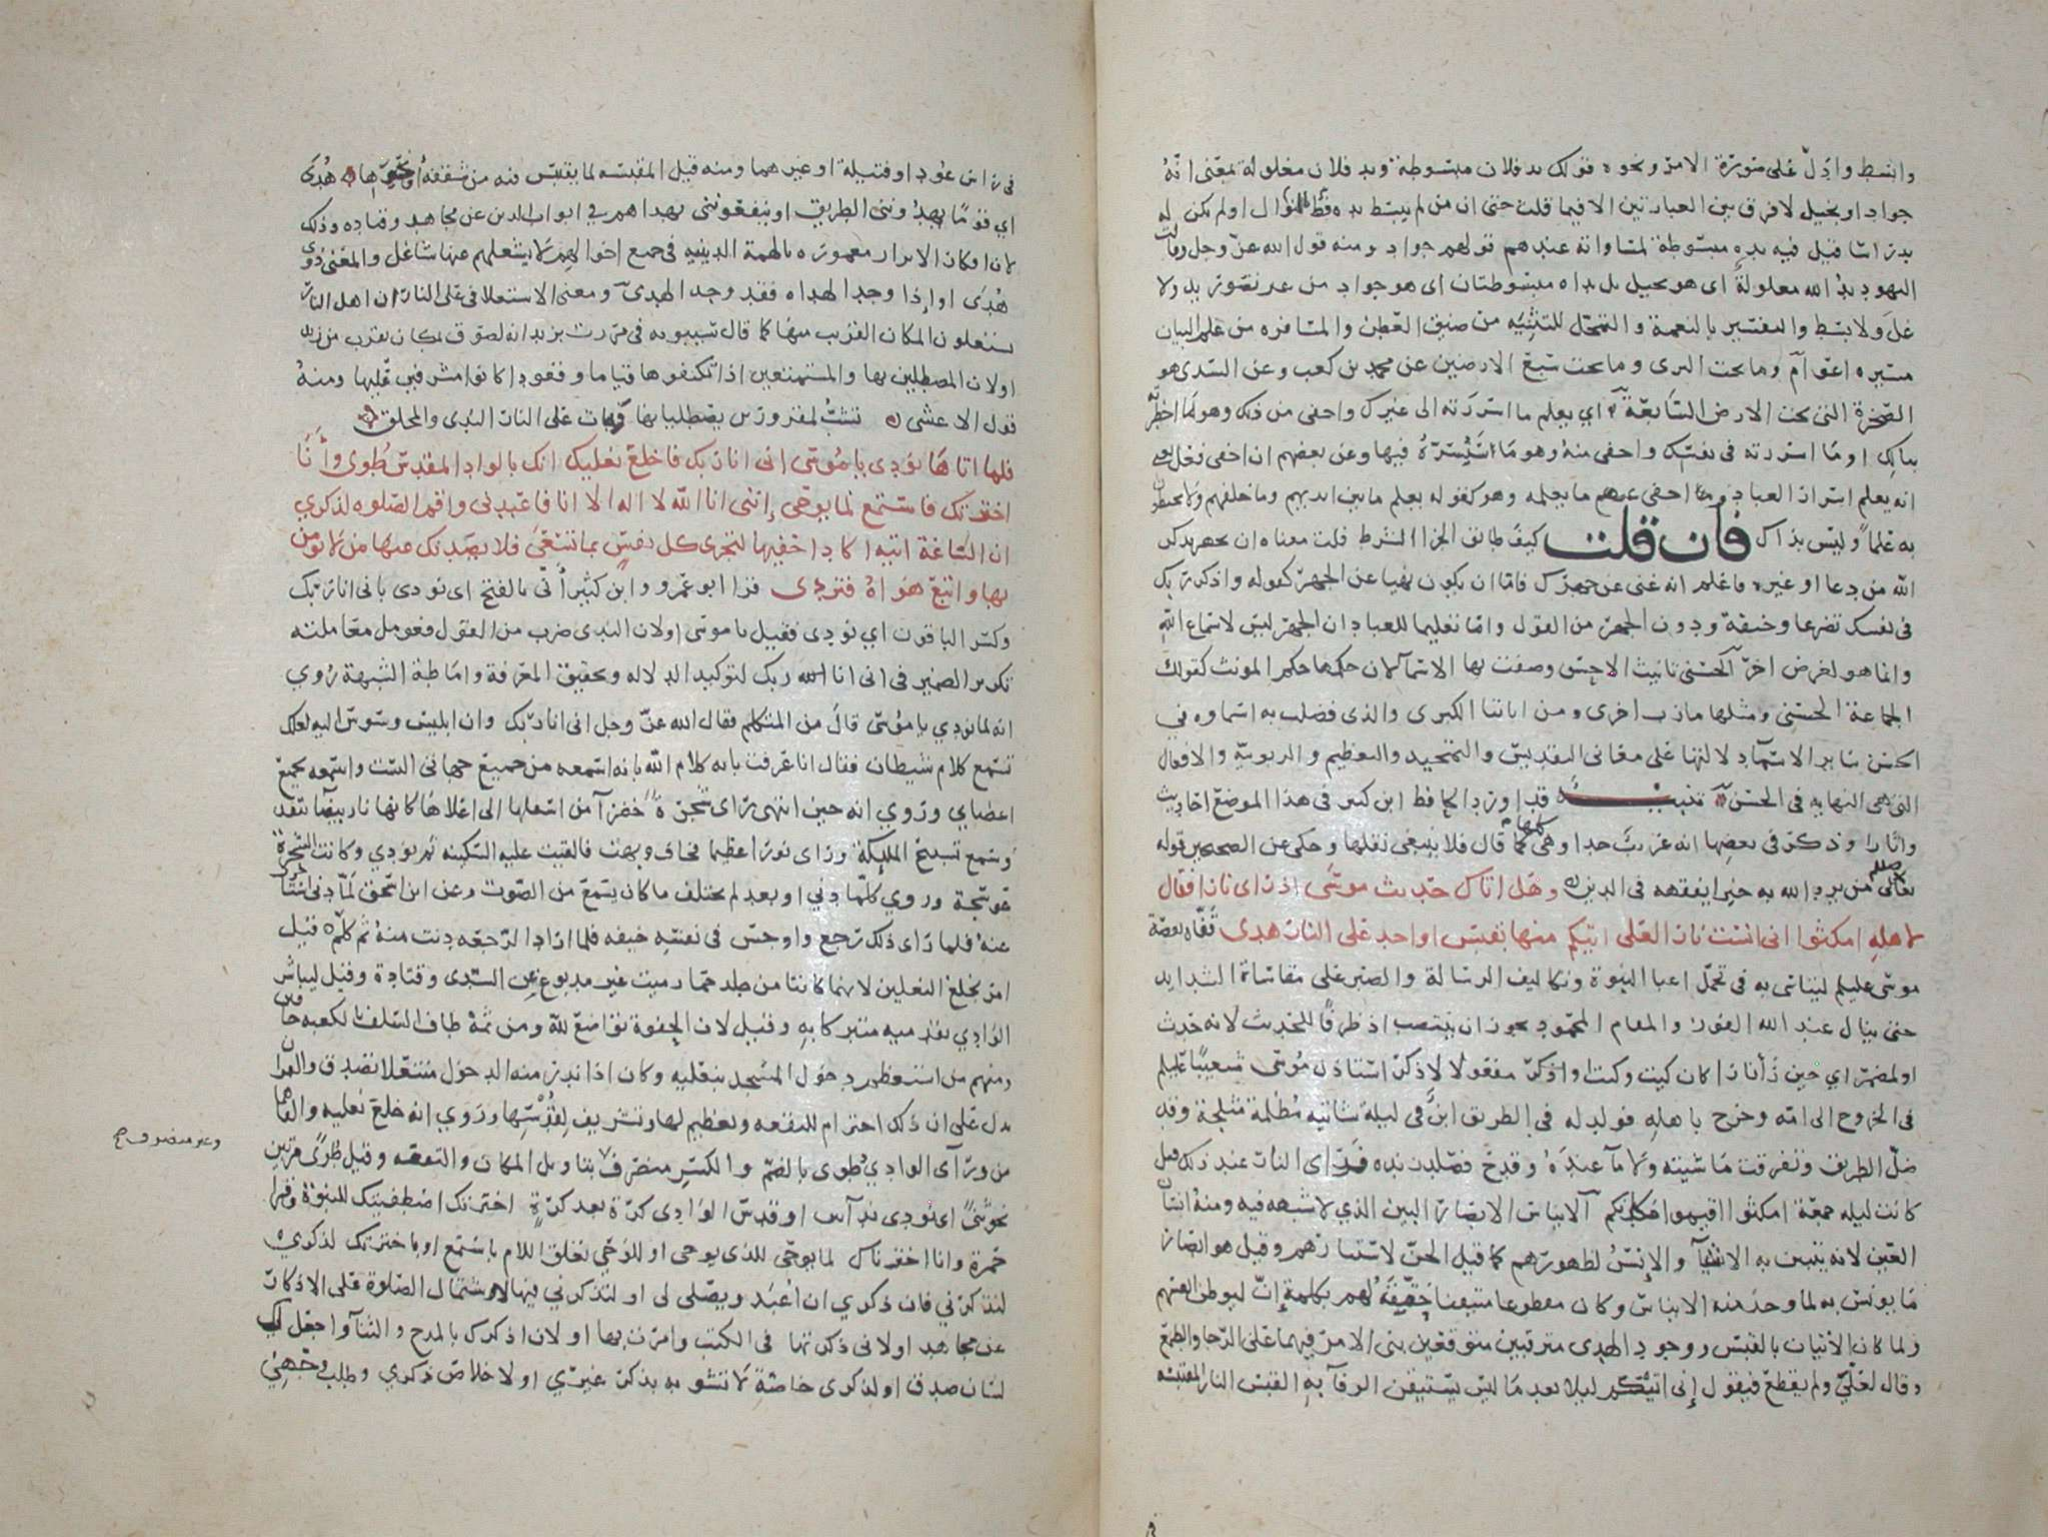 وابسط وادل على صورة الامر ونحوه قولك يد فلان مبسوطة ويد فلان مغلولة بمعنى انه
جواد او بخيل لا فرق بين العبارتين الا فيما قلت حتى ان من لم يبسط يده قط بالنوال او لم تكن له
يد راسا قيل فيه يده مبسوطة لمساواته عندهم قولهم جواد ومنه قول الله عز وجل وقالت
اليهود يد الله مغلولة اى هو بخيل بل يداه مبسوطتان اى هو جواد من غير تصور يد ولا
غل ولا بسط والتفسير بالنعمة والتمحل للتثنيه من ضيق العطن والمسافره عن علم البيان
مسيره اعوام وما تحت الثرى وما تحت سبع الارضين عن محمد بن كعب وعن السدى هو
الصخرة التى تحت الارض السابعة اي يعلم ما اسررته الى غيرك واخفى من ذلك وهو ما اخطرته
ببالك او ما اسررته فى نفسك واخفى منه وهو ما ستسره فيها وعن بعضهم ان اخفى فعل يعنى
انه يعلم اسرار العباد واخفى عنهم ما يعلمه وهو كقوله يعلم ما بين ايديهم وما خلفهم ولا يحيطون
به علما وليس بذاك فان قلت كيف طابق الجزا الشرط قلت معناه ان تجهر بذكر
الله من دعا او غيره فاعلم انه غنى عن جهرك فاما ان يكون نهيا عن الجهر كقوله واذكر ربك
فى نفسك تضرعا وخيفة ودون الجهر من القول واما تعليما للعباد ان الجهر ليس لاسماع الله
وانما هو لغرض اخر الحسنى تانيث الاحسن وصفت بها الاسما لان حكمها حكم المونث كقولك
الجماعة الحسنى ومثلها مارب اخرى ومن اياتنا الكبرى والذى فضلت به اسماوه في
الحسن ساير الاسما دلالتها على معانى التقديس والتمجيد والتعظيم والربوبية والافعال
التى هى النهايه فى الحسن تنبيه قد اورد الحافظ ابن كثير فى هذا الموضع احاديث
واثارا وذكر فى بعضها انه غريب جدا وهى كلها كما قال فلا ينبغى نقلها وحكى عن الصحيحين قوله
صلعم من يرد الله به خيرا يفقهه فى الدين وهل اتاك حديث موسى اذ راى نارا فقال
لاهله امكثوا انى انست نارا لعلى اتيكم منها بقبس او اجد على النار هدى قفاه بقصة
موسى عليلم ليتاسى به فى تحمل اعبا النبوة وتكاليف الرسالة والصبر على مقاساة الشدايد
حتى ينال عند الله الفوز والمقام المحمود يجوز ان ينتصب اذ ظرفا للحديث لانه حدث
او لمضمر اي حين رأى نارا كان كيت وكيت او اذكر مفعولا لاذكر استاذن موسى شعيبا عليلم
فى الخروج الى امه وخرج باهله فولد له فى الطريق ابن فى ليلة شاتيه مظلمة مثلجة وقد
ضل الطريق وتفرقت ماشيته ولا ما عنده وقدح فصلد زنده فراى النار عند ذلك قيل
كانت ليله جمعة امكثوا اقيموا مكانكم الايناس الابصار البين الذي لا شبهه فيه ومنه انسان
العين لانه يتبين به الاشيا والانس لظهورهم كما قيل الجن لاستتارهم وقيل هو ابصار
ما يونس به لما وجد منه الايناس وكان مقطوعا متيقنا حققه لهم بكلمة ان ليوطن انفسهم
ولما كان الاتيان بالقبس ووجود الهدى مترقبين متوقعين بنى الامر فيهما على الرجا والطمع
وقال لعلي ولم يقطع فيقول إنى اتيكم ليلا يعد ما ليس يستيقن الوفا به القبس النار المقتبسه
فى راس عود او فتيلة او غيرهما ومنه قيل المقبسه لما يقتبس فيه من شقفه او نحوها هدى
اي قوما يهدونني الطريق او ينفعونني بهداهم في ابواب الدين عن مجاهد وقتاده وذلك
لان افكار الابرار معموره بالهمة الدينيه فى جميع احوالهم لا يشغلهم عنها شاغل والمعنى ذوي
هدى او اذا وجد الهداه فقد وجد الهدى ومعنى الاستعلا فى على النار ان اهل النار
يستعلون المكان القريب منها كما قال سيبويه فى مررت بزيد انه لصوق بمكان يقرب من زيد
او لان المصطلين بها والمستمتعين اذا تكنفوها قياما وقعودا كانوا مشرفين عليها ومنه
قول الاعشى تشب لمقرورين يصطليانها وبات على النار الندى والمحلق
فلما اتاها نودى يا موسى انى انا ربك فاخلع نعليك انك بالواد المقدس طوى وأنا
اخترتك فاستمع لما يوحى إنني انا الله لا اله الا انا فاعبدنى واقم الصلوه لذكري
ان الساعة اتيه اكاد اخفيها لتجزى كل نفس بما تسعى فلا يصدنك عنها من لا يومن
بها واتبع هواه فتردى قرا ابو عمرو وابن كثير أنى بالفتح اى نودى بانى انا ربك
وكسر الباقون اي نودى فقيل يا موسى او لان الندى ضرب من القول فعومل معاملته
تكرير الضمير فى انى انا ربك لتوكيد الدلاله وتحقيق المعرفة واماطة الشبهة روي
انه لما نودي يا موسى قال من المتكلم فقال الله عز وجل انى انا ربك وان ابليس وسوس اليه لعلك
تسمع كلام شيطان فقال انا عرفت بانه كلام الله بانه اسمعه من جميع جهاتى الست واسمعه بجميع
اعضاي وروي انه حين انتهى راى شجرة خضرا من اسفلها الى اعلاها كانها نار بيضا تتقد
وسمع تسبيح المليكة وراى نورا عظيما فخاف وبهت فالقيت عليه السكينه ثم نودي وكانت الشجرة
عوسجة وروي كلما دنى او بعد لم يختلف ما كان يسمع من الصوت وعن ابن اسحق لما دنى استاخرت
عنه فلما راى ذلك رجع واوجس فى نفسه خيفه فلما اراد الرجعه دنت منه ثم كلمه قيل
امر بخلع النعلين لانهما كانتا من جلد حمار ميت غير مدبوغ عن السدى وقتادة وقيل ليباشر
الوادي بقدميه متبركا به وقيل لان الحفوة تواضع لله ومن ثم طاف السلف بالكعبه حافين
ومنهم من استعظم دخول المسجد بنعليه وكان اذا ندر منه الدخول منتعلا تصدق والقران
يدل على ان ذلك احترام للبقعه وتعظيم لها وتشريف لقدسها وروي انه خلع نعليه والقاهما
من ورآى الوادي طوى بالضم والكسر منصرف بتاويل المكان والبقعه وقيل طوى مرتين
وغير منصرف صح
نحو ثنى اى نودى ندآين او قدس الوادى كرة بعد كرة اخترتك اصطفيتك للنبوة وقرا
حمزة وانا اخترناك لما يوحى للذى يوحى او للوحي تعلق اللام باستمع او باخترتك لذكري
لتذكرني فان ذكري ان اعبد ويصلى لى او لتذكرني فيها لاشتمال الصلوة على الاذكار
عن مجاهد او لانى ذكرتها فى الكتب وامرت بها او لان اذكرك بالمدح والثنا واجعل لك
لسان صدق او لذكرى خاصة لا تشوبه بذكر غيري او لاخلاص ذكري وطلب وجهي